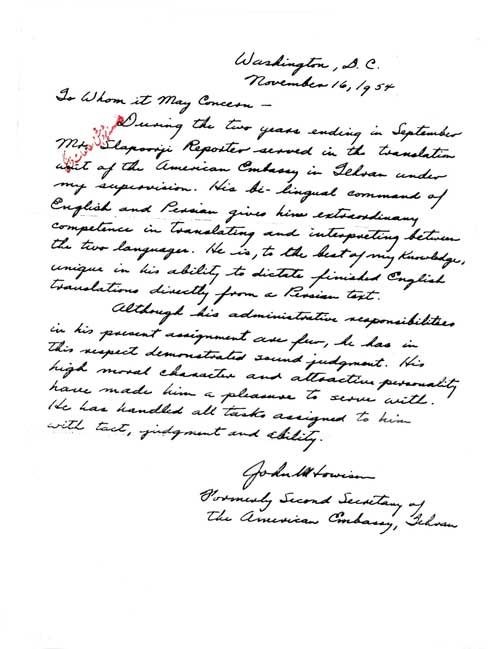 Washington, D.C.
November 16, 1954
To Whom it May Concern —
During the two years ending in September
Mr. Shapoorji Reporter served in the translation
unit of the American Embassy in Tehran under
my supervision. His bi-lingual command of
English and Persian gives him extraordinary
competence in translating and interpreting between
the two languages. He is, to the best of my knowledge,
unique in his ability to dictate finished English
translations directly from a Persian text.
Although his administrative responsibilities
in his present assignment are few, he has in
this respect demonstrated sound judgment. His
high moral character and attractive personality
have made him a pleasure to serve with.
He has handled all tasks assigned to him
with tact, judgment and ability.
John M Howison
Formerly Second Secretary of
the American Embassy, Tehran